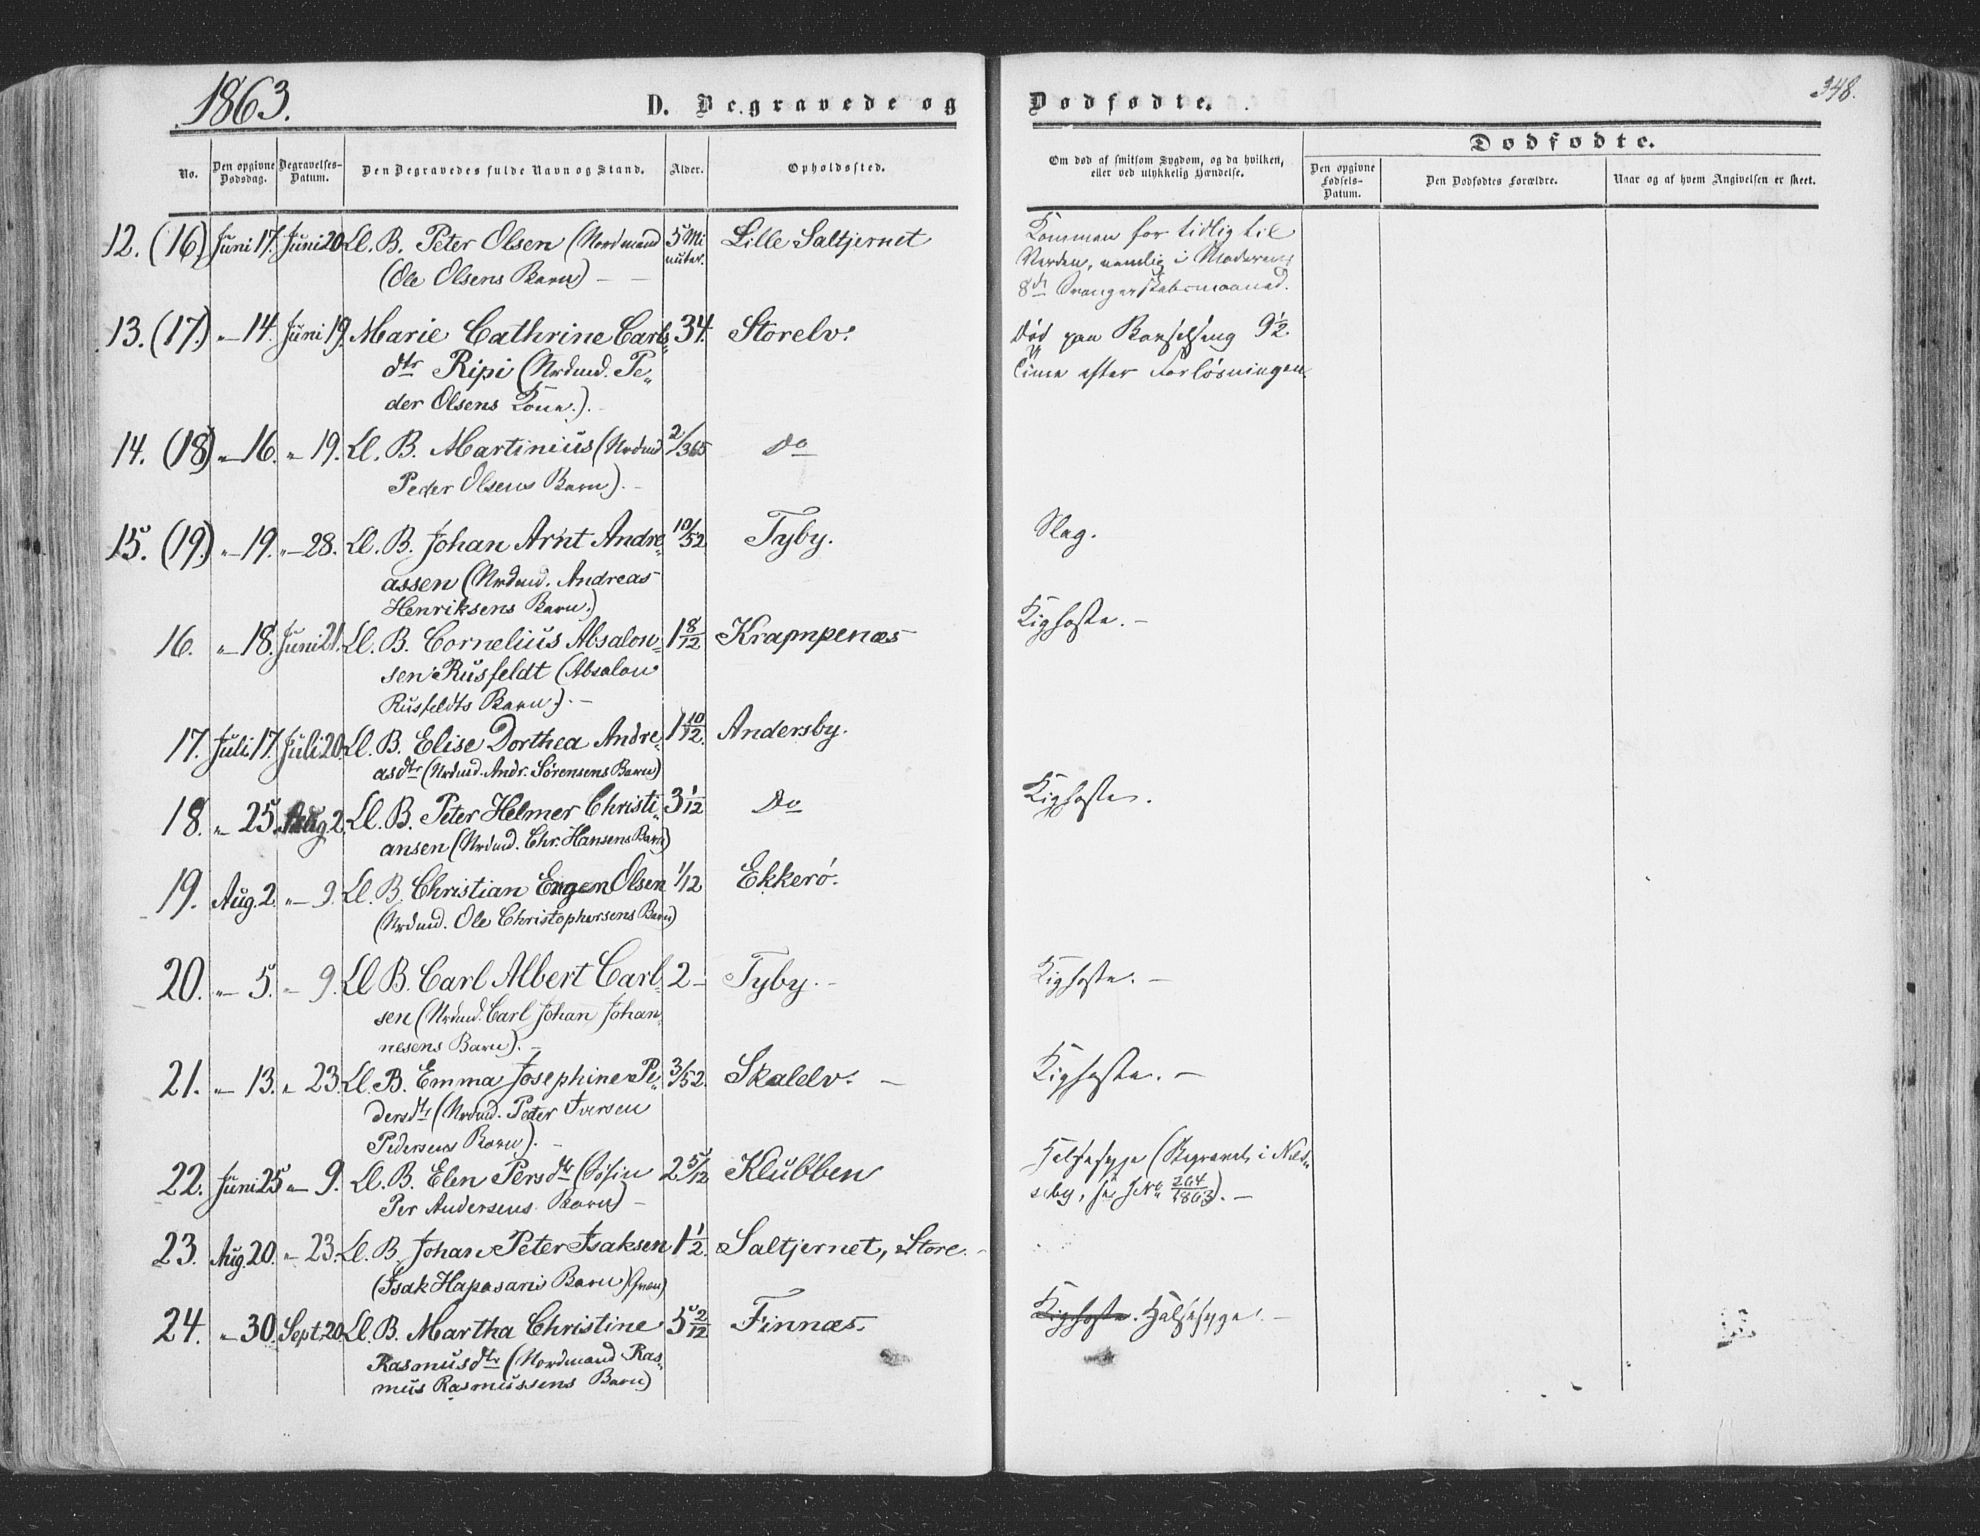 1863.
D. Begravede og
Dødfødte.
348.
Dødfødte.
No.
Den opgivne Dødsdag.
Begravelses-Datum.
Den Begravedes fulde Navn og Stand.
Alder.
Opholdssted.
Om død af smitsom Sygdom, og da hvilken,
eller ved ulykkelig Hændelse.
Den opgivne Fødsels-Datum.
Den Dødfødtes Forældre.
Naar og af hvem Angivelsen er skeet.
12. (16) Juni 17. Juni 20. Ll. B. Peter Olsen (Nordmand 5 Mi Lille Saltjernet Kommen for tidlig til
(Ole Olsens Barn) — nuter. Verden, nemlig i Moderens
8de Svangerskabsmaaned.
13. (17.) "— 14. Juni 19. Marie Cathrine Carls 34. Storelv. Død paa Barselseng 9½
dtr Ripi (Nrdmd. Pe„ Time efter Forløsningen.
der Olsens Kone.).
14. (18) "— 16. " 19. Ll. B. Martinius (Nrdmd 2/365 Do
Peder Olsens Barn). —
15. (19.) "— 19. "— 28. Ll. B. Johan Arnt Andre 10/52 Tyby. Slag.
assen (Nrdmd. Andreas
Henriksens Barn.)
16. "— 18. Juni 21. Ll. B. Cornelius Absalon- 1 8/12 Krampenæs Kighoste. —
sen Rusfeldt (Absalon
Rusfeldts Barn). —
17. Juli 17. Juli 20. Ll. B. Elise Dorthea Andre- 1 10/12. Andersby.
asdtr (Nrdmd. Andr. Sørensens Barn)
18. "— 25. Aug 2. Ll. B. Peter Helmer Christi- 3 1/12 Do Kighoste.
ansen (Nrdmd. Chr. Hansens Barn)
19. Aug. 2. "— 9. Ll. B. Christian Eugen Olsen 1/12 Ekkerö.
(Nrdmd. Ole Christophersens Barn)
20. "— 5. "— 9. Ll B. Carl Albert Carl- 2 — Tyby. — Kighoste. —
sen (Nrdmd. Carl Johan Johan-
nesens Barn). —
21. "— 13. " 23. Ll. B. Emma Josephine Pe- 3/52. Skalelv. — Kighoste. —
dersdtr (Nrdmd. Peder Iversen
Pedersens Barn). —
22. Juni 25 "— 9. Ll. B. Elen Persdtr (Søfin 2 5/12 Klubben Halssyge (Begravet i Næs-
Per Andersens Barn) — seby, se JNo 264/1863). —
23. Aug. 20. "— 23. Ll. B. Johan Peter Isaksen 1 1/2. Saltjernet, Store. —
(Isak Hapasaris Barn) (Qvæn)
24. "— 30. Sept. 20 Ll. B. Martha Christine 5 2/12 Finnæs. Kighoste. Halssyge. —
Rasmusdtr (Nordmand Ras-
mus Rasmussens Barn)